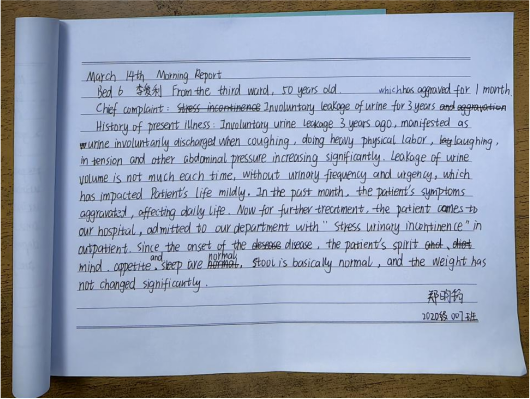 March 14th Morning Report
Bed 6 From the third ward, 50 years old. which has aggraved for 1 month.
Chief complaint: stress incontinence Involuntary leakage of urine for 3 years and aggravation
History of present illness: Involuntary urine leakage 3 years ago, manifested as
urine involuntarily discharged when coughing, doing heavy physical labor, laughing,
in tension and other abdominal pressure increasing significantly. Leakage of urine
volume is not much each time, without urinary frequency and urgency, which
has impacted Patient's life mildly. In the past month, the patient's symptoms
aggravated, affecting daily life. Now for further treatment, the patient comes to
our hospital, admitted to our department with "stress urinary incontinence" in
outpatient. Since the onset of the disease, the patient's spirit and, diet
mind, appetite, and sleep are normal normal, stool is basically normal, and the weight has
not changed significantly.
2020级 007班